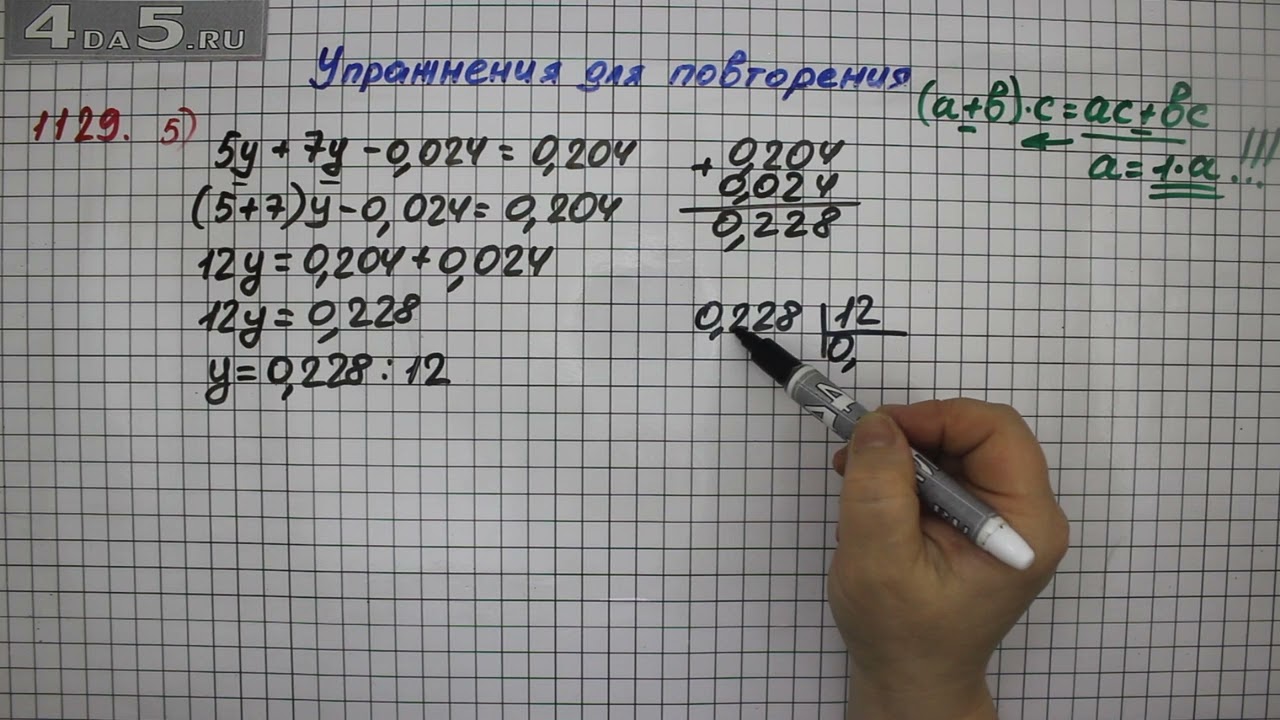 4DA5.RU
Упражнения для повторения
1129. 5)
5y + 7y - 0,024 = 0,204
(5+7)y - 0,024 = 0,204
12y = 0,204 + 0,024
12y = 0,228
y = 0,228 : 12
+ 0,204
0,024
0,228
0,228 | 12
0,
(a+b)·c = ac+bc
a = 1·a !!!